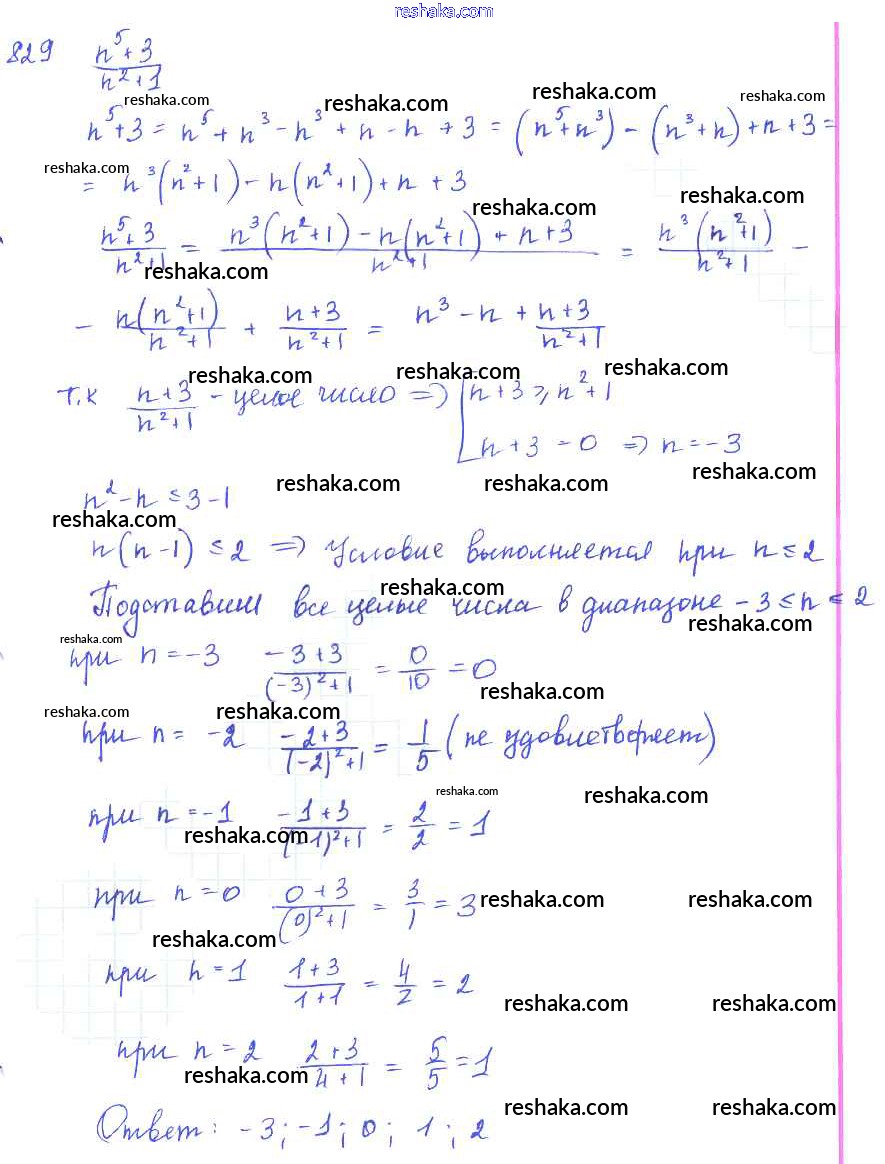 reshaka.com
829 (n^5+3)/(n^2+1)
reshaka.com reshaka.com reshaka.com reshaka.com
n^5+3 = n^5 + n^3 - n^3 + n - n + 3 = (n^5+n^3) - (n^3+n) + n + 3 =
reshaka.com
= n^3(n^2+1) - n(n^2+1) + n + 3
reshaka.com reshaka.com
(n^5+3)/(n^2+1) = (n^3(n^2+1) - n(n^2+1) + n+3)/(n^2+1) = n^3(n^2+1)/(n^2+1) -
reshaka.com
- n(n^2+1)/(n^2+1) + (n+3)/(n^2+1) = n^3 - n + (n+3)/(n^2+1)
reshaka.com reshaka.com reshaka.com
Т.к (n+3)/(n^2+1) - целое число => [n+3 ⩾ n^2+1
n+3 = 0 => n = -3
reshaka.com reshaka.com reshaka.com
n^2 - n ≤ 3 - 1
reshaka.com
n(n-1) ≤ 2 => Условие выполняется при n ≤ 2
reshaka.com
Подставим все целые числа в диапазоне -3 ≤ n ≤ 2
reshaka.com reshaka.com
при n = -3 (-3+3)/((-3)^2+1) = 0/10 = 0
reshaka.com
reshaka.com reshaka.com
при n = -2 (-2+3)/((-2)^2+1) = 1/5 (не удовлетворяет)
reshaka.com reshaka.com
при n = -1 (-1+3)/((-1)^2+1) = 2/2 = 1
reshaka.com
при n = 0 (0+3)/((0)^2+1) = 3/1 = 3
reshaka.com reshaka.com
reshaka.com
при n = 1 (1+3)/(1+1) = 4/2 = 2
reshaka.com reshaka.com
при n = 2 (2+3)/(4+1) = 5/5 = 1
reshaka.com
reshaka.com reshaka.com
Ответ: -3; -1; 0; 1; 2